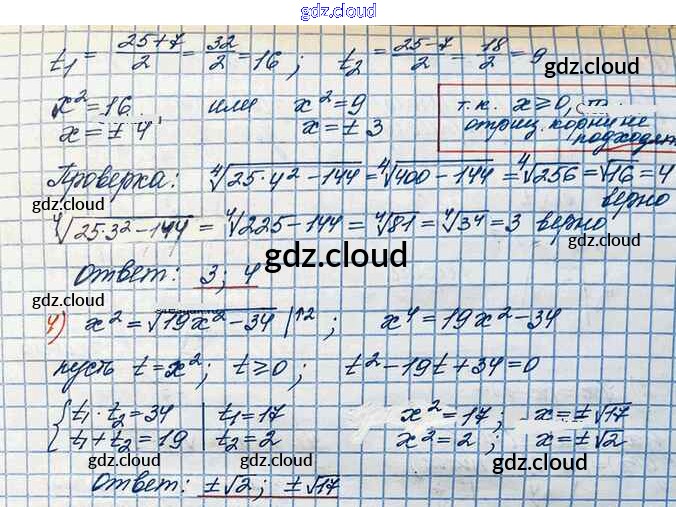 gdz.cloud
t₁ = (25+7)/2 = 32/2 = 16; t₂ = (25-7)/2 = 18/2 = 9
gdz.cloud
x² = 16, или x² = 9
x = ± 4 x = ± 3
т.к. x ≥ 0,
отриц. корни не
подходят
Проверка: ⁴√(25·4² - 144) = ⁴√(400 - 144) = ⁴√256 = √16 = 4
верно
gdz.cloud gdz.cloud
⁴√(25·3² - 144) = ⁴√(225 - 144) = ⁴√81 = ⁴√3⁴ = 3 верно
gdz.cloud
Ответ: 3; 4
gdz.cloud gdz.cloud
4) x² = √(19x² - 34) |↑2; x⁴ = 19x² - 34
пусть t = x²; t ≥ 0; t² - 19t + 34 = 0
{ t₁ · t₂ = 34 | t₁ = 17 x² = 17; x = ±√17
t₁ + t₂ = 19 | t₂ = 2 x² = 2; x = ±√2
gdz.cloud gdz.cloud
Ответ: ±√2; ±√17
gdz.cloud